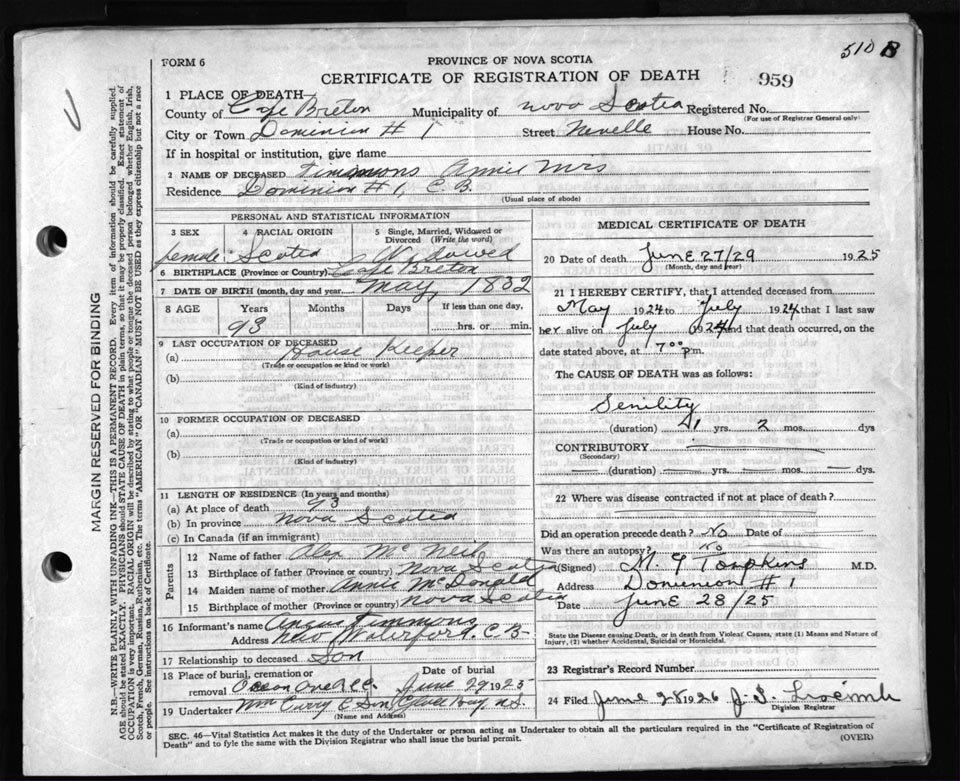 510 B
FORM 6
PROVINCE OF NOVA SCOTIA
CERTIFICATE OF REGISTRATION OF DEATH
959
1 PLACE OF DEATH
County of Cape Breton Municipality of Nova Scotia Registered No.
(For use of Registrar General only)
City or Town Dominion # 1 Street Nevelle House No.
If in hospital or institution, give name
2 NAME OF DECEASED Timmons Annie Mrs
Residence Dominion # 1, C.B.
(Usual place of abode)
PERSONAL AND STATISTICAL INFORMATION
3 SEX 4 RACIAL ORIGIN 5 Single, Married, Widowed or Divorced (Write the word)
female Scotia Widowed
6 BIRTHPLACE (Province or Country) Cape Breton
7 DATE OF BIRTH (month, day and year) May, 1832
8 AGE Years Months Days If less than one day,
93 hrs. or min.
9 LAST OCCUPATION OF DECEASED
(a) House Keeper
(Trade or occupation or kind of work)
(b)
(Kind of industry)
10 FORMER OCCUPATION OF DECEASED
(a)
(Trade or occupation or kind of work)
(b)
(Kind of industry)
11 LENGTH OF RESIDENCE (In years and months)
(a) At place of death 93
(b) In province Nova Scotia
(c) In Canada (if an immigrant)
Parents
12 Name of father Alex McNeil
13 Birthplace of father (Province or country) Nova Scotia
14 Maiden name of mother Annie McDonald
15 Birthplace of mother (Province or country) Nova Scotia
16 Informant's name Angus Timmons
Address New Waterford, C.B.
17 Relationship to deceased Son
18 Place of burial, cremation or Date of burial
removal June 29 1925
19 Undertaker Wm Curry & Son, Glace Bay N.S.
(Name and Address)
MEDICAL CERTIFICATE OF DEATH
20 Date of death June 27/29 1925
(Month, day and year)
21 I HEREBY CERTIFY, that I attended deceased from
May 1924 to July 1924 that I last saw
her alive on July 1924 and that death occurred, on the
date stated above, at 7 00 p m.
The CAUSE OF DEATH was as follows:
Senility
(duration) yrs. 2 mos. dys
CONTRIBUTORY
(Secondary)
(duration) yrs. mos. dys.
22 Where was disease contracted if not at place of death?
Did an operation precede death? No Date of
Was there an autopsy? No
(Signed) M. G Tompkins M.D.
Address Dominion # 1
Date June 28/25
State the Disease causing Death, or in death from Violent Causes, state (1) Means and Nature of
Injury, (2) whether Accidental, Suicidal or Homicidal.
23 Registrar's Record Number
24 Filed June 28 1926 J. S.
Division Registrar
SEC. 46—Vital Statistics Act makes it the duty of the Undertaker or person acting as Undertaker to obtain all the particulars required in the "Certificate of Registration of
Death" and to fyle the same with the Division Registrar who shall issue the burial permit.
(OVER)
MARGIN RESERVED FOR BINDING
N.B.—WRITE PLAINLY WITH UNFADING INK—THIS IS A PERMANENT RECORD. Every item of information should be carefully supplied.
AGE should be stated EXACTLY. PHYSICIANS should STATE CAUSE OF DEATH in plain terms, so that it may be properly classified. Exact statement of
OCCUPATION is very important. RACIAL ORIGIN will be described by stating to what people or tongue the deceased person belonged whether English, Irish,
Scotch, French, German, Russian, Ruthenian, etc. The terms "AMERICAN" OR "CANADIAN" MUST NOT BE USED as they express citizenship but not a race
or people. See instructions on back of Certificate.